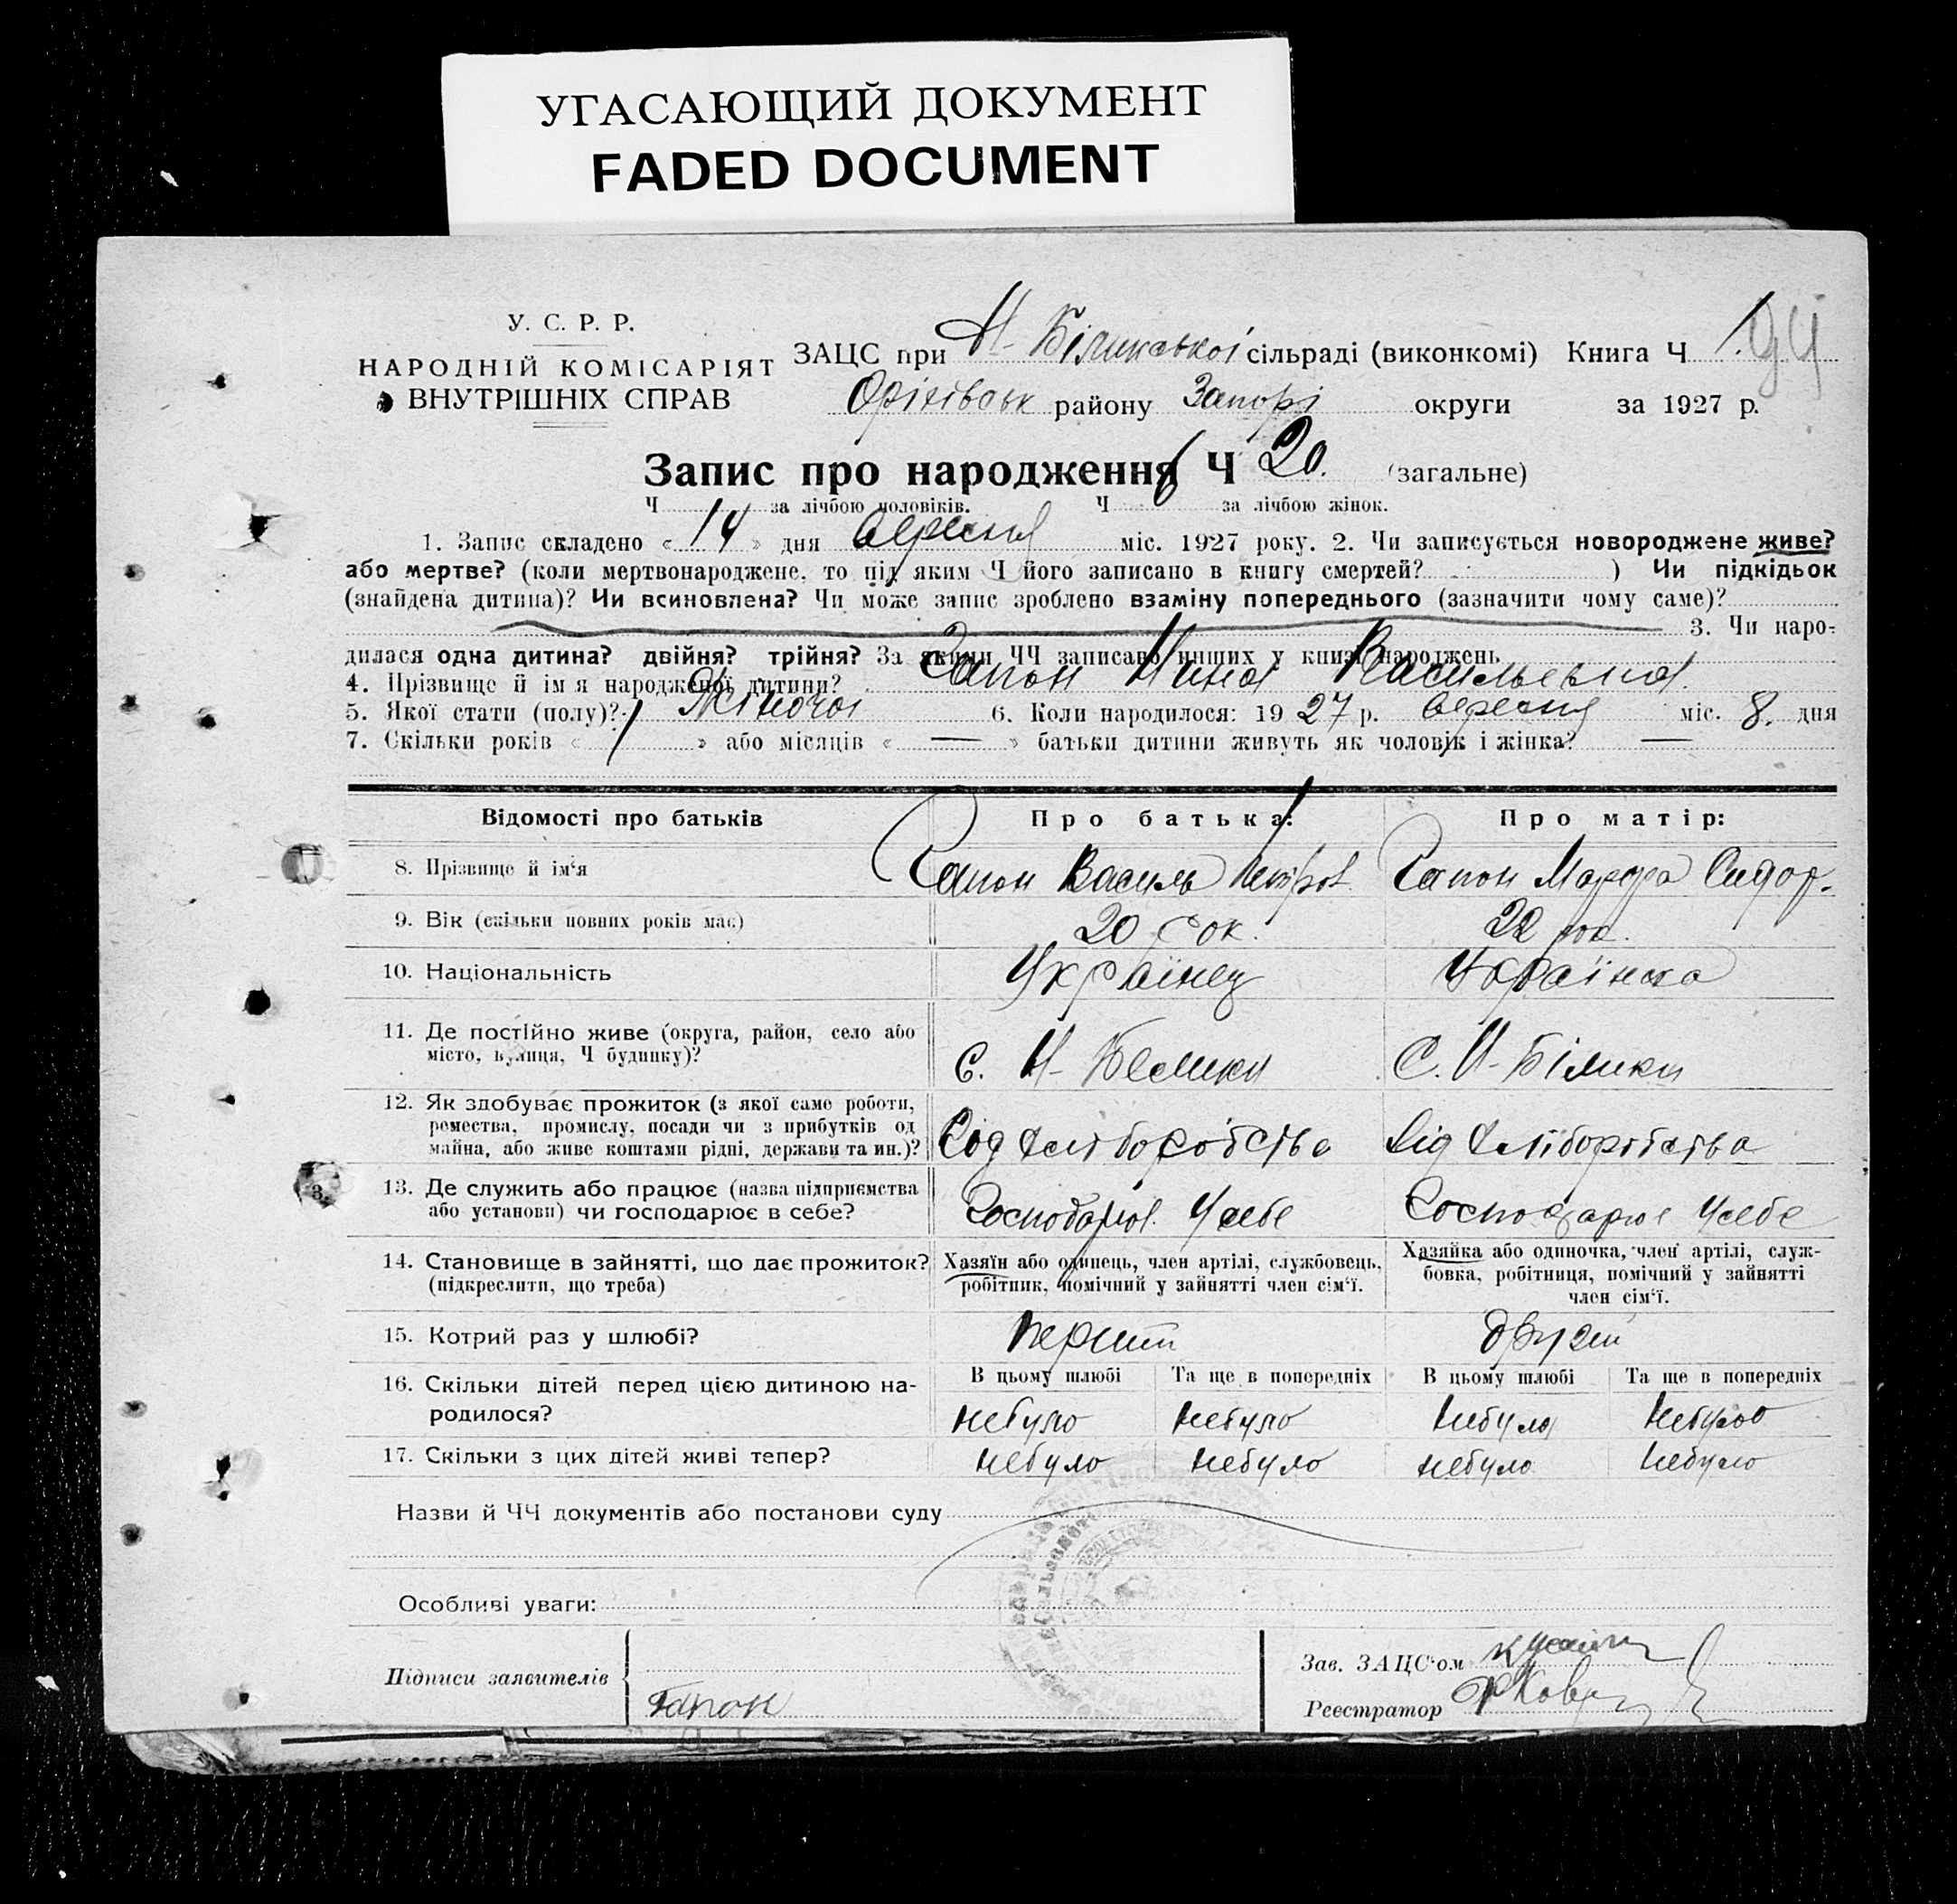 УГАСАЮЩИЙ ДОКУМЕНТ
FADED DOCUMENT
У. С. Р. Р.
НАРОДНІЙ КОМІСАРІЯТ
ВНУТРІШНІХ СПРАВ
ЗАЦС при Н-Біликівської сільраді (виконкомі) Книга Ч 1
Оріхівськ району Запорі округи за 1927 р.
Запис про народження Ч 20. (загальне)
Ч за лічбою чоловіків. Ч 6 за лічбою жінок.
1. Запис складено « 14 » дня вересня міс. 1927 року. 2. Чи записується новороджене живе?
або мертве? (коли мертвонароджене, то під яким Ч його записано в книгу смертей? ) Чи підкідьок
(знайдена дитина)? Чи всиновлена? Чи може запис зроблено взаміну попереднього (зазначити чому саме)?
3. Чи наро-
дилася одна дитина? двійня? трійня? За якими ЧЧ записано инших у книзі народжень
4. Прізвище й ім'я народженої дитини? Гапон Нина Васильевна
5. Якої стати (полу)? Жіночоі 6. Коли народилося: 1927 р. вересня міс. 8. дня
7. Скільки років « 1 » або місяців « — » батьки дитини живуть як чоловік і жінка? —
Відомості про батьків Про батька: Про матір:
8. Прізвище й ім'я Гапон Василь Петров Гапон Марфа Сидор.
9. Вік (скільки повних років має) 20 рок. 22 рок.
10. Національність Українец Українка
11. Де постійно живе (округа, район, село або
місто, вулиця, Ч будинку)? С. Н-Белики С. Н-Білики
12. Як здобуває прожиток (з якої саме роботи,
ремества, промислу, посади чи з прибутків од
майна, або живе коштами рідні, держави та ин.)? Від хліборобства Від хліборобства
13. Де служить або працює (назва підприємства
або установи) чи господарює в себе? Господарює У себе Господарює У себе
14. Становище в зайнятті, що дає прожиток?
(підкреслити, що треба)
Хазяїн або одинець, член артілі, службовець,
робітник, помічний у зайнятті член сім'ї.
Хазяйка або одиночка, член артілі, служ-
бовка, робітниця, помічний у зайнятті
член сім'ї.
15. Котрий раз у шлюбі? перший другий
16. Скільки дітей перед цією дитиною на-
родилося?
В цьому шлюбі Та ще в попередніх В цьому шлюбі Та ще в попередніх
небуло небуло небуло небуло
17. Скільки з цих дітей живі тепер? небуло небуло небуло небуло
Назви й ЧЧ документів або постанови суду
Особливі уваги:
Підписи заявителів Гапон
Зав. ЗАЦС'ом
Реестратор